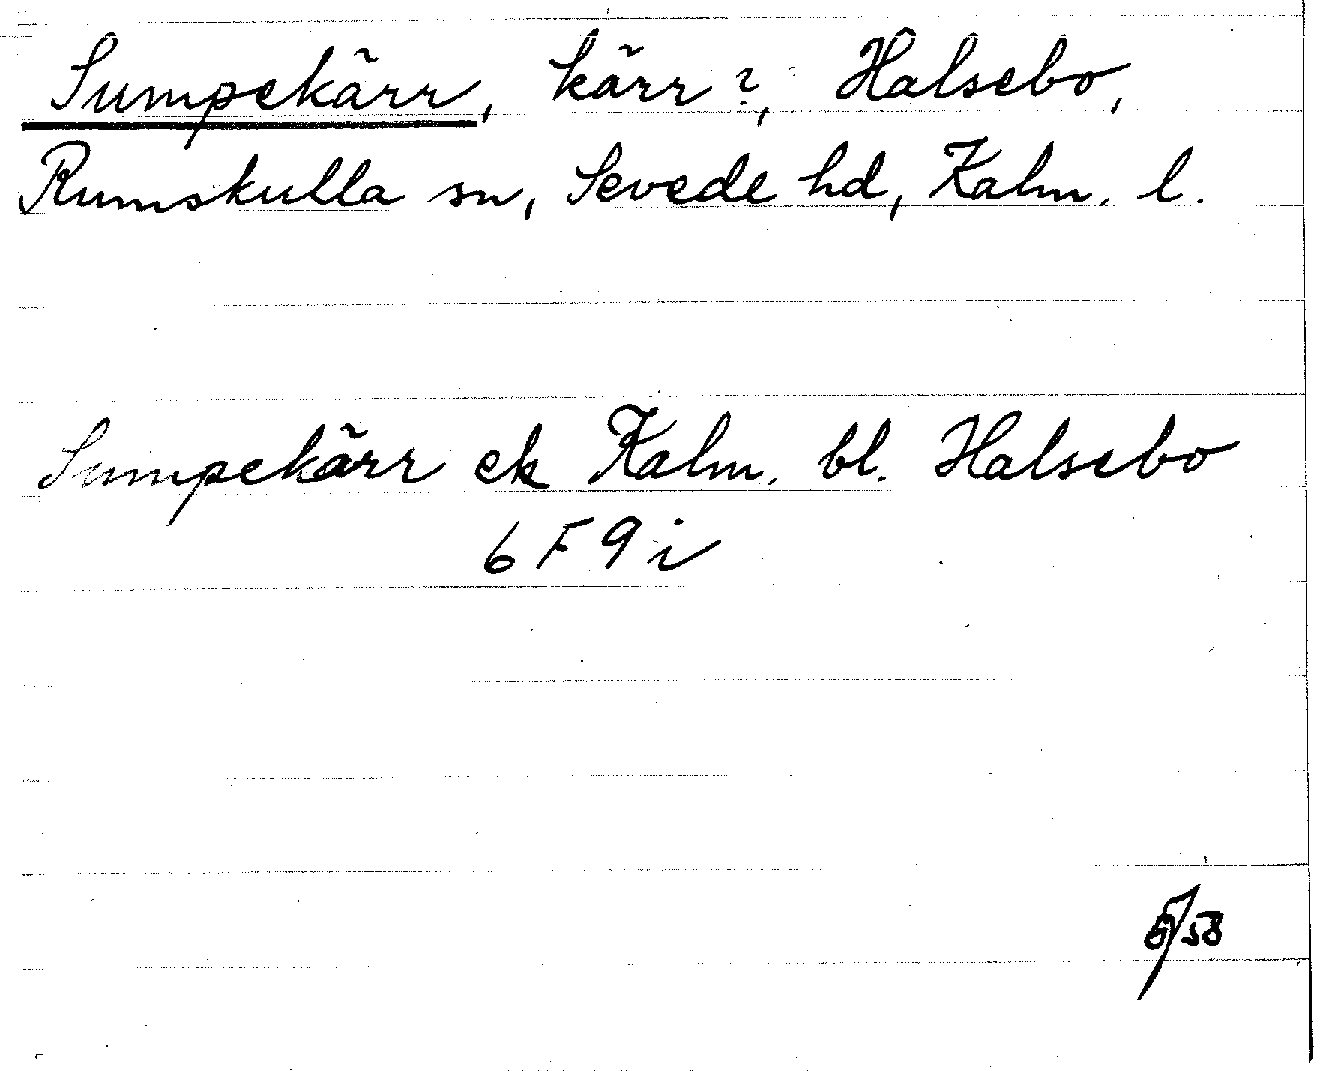 Sumpekärr, kärr?, Halsebo,
Rumskulla sn, Sevede hd, Kalm. l.
Sumpekärr ek Kalm. bl. Halsebo
6 F 9 i